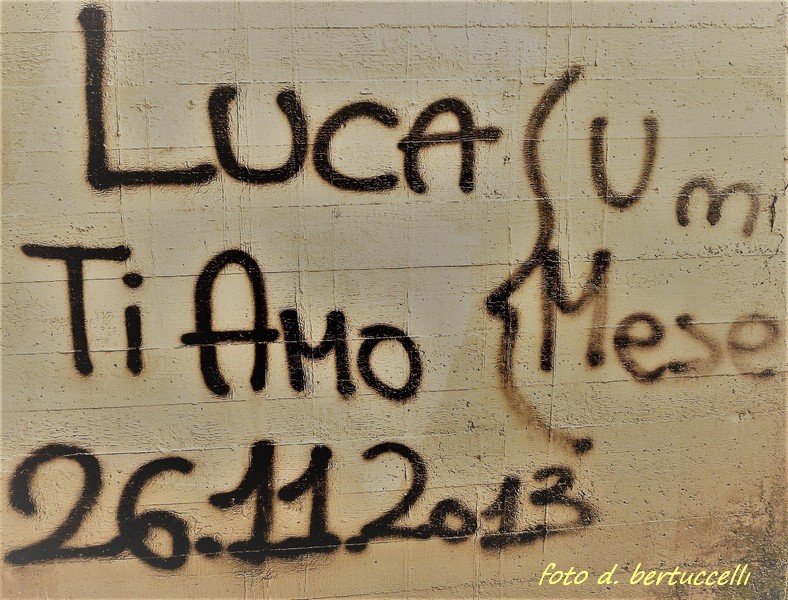 LUCA
Ti AMO
26.11.2013
{ Um
Mese
foto d. bertuccelli